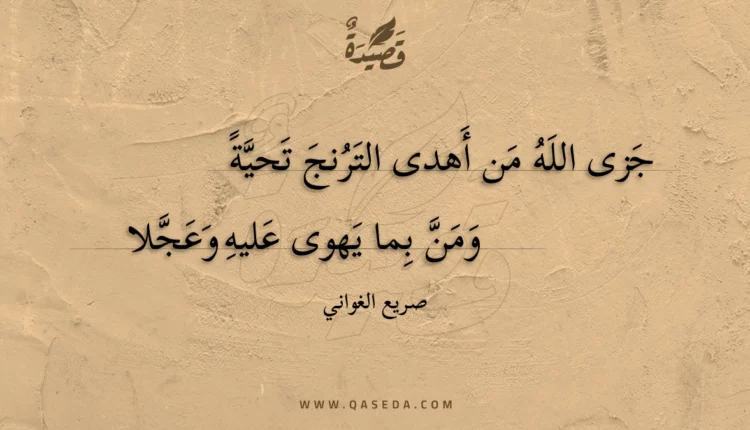 قَصِيْدَةٌ
جَزى اللَهُ مَن أَهدى التَرُنجَ تَحيَّةً
وَمَنَّ بِما يَهوى عَليهِ وَعَجَّلا
صريع الغواني
WWW.QASEDA.COM